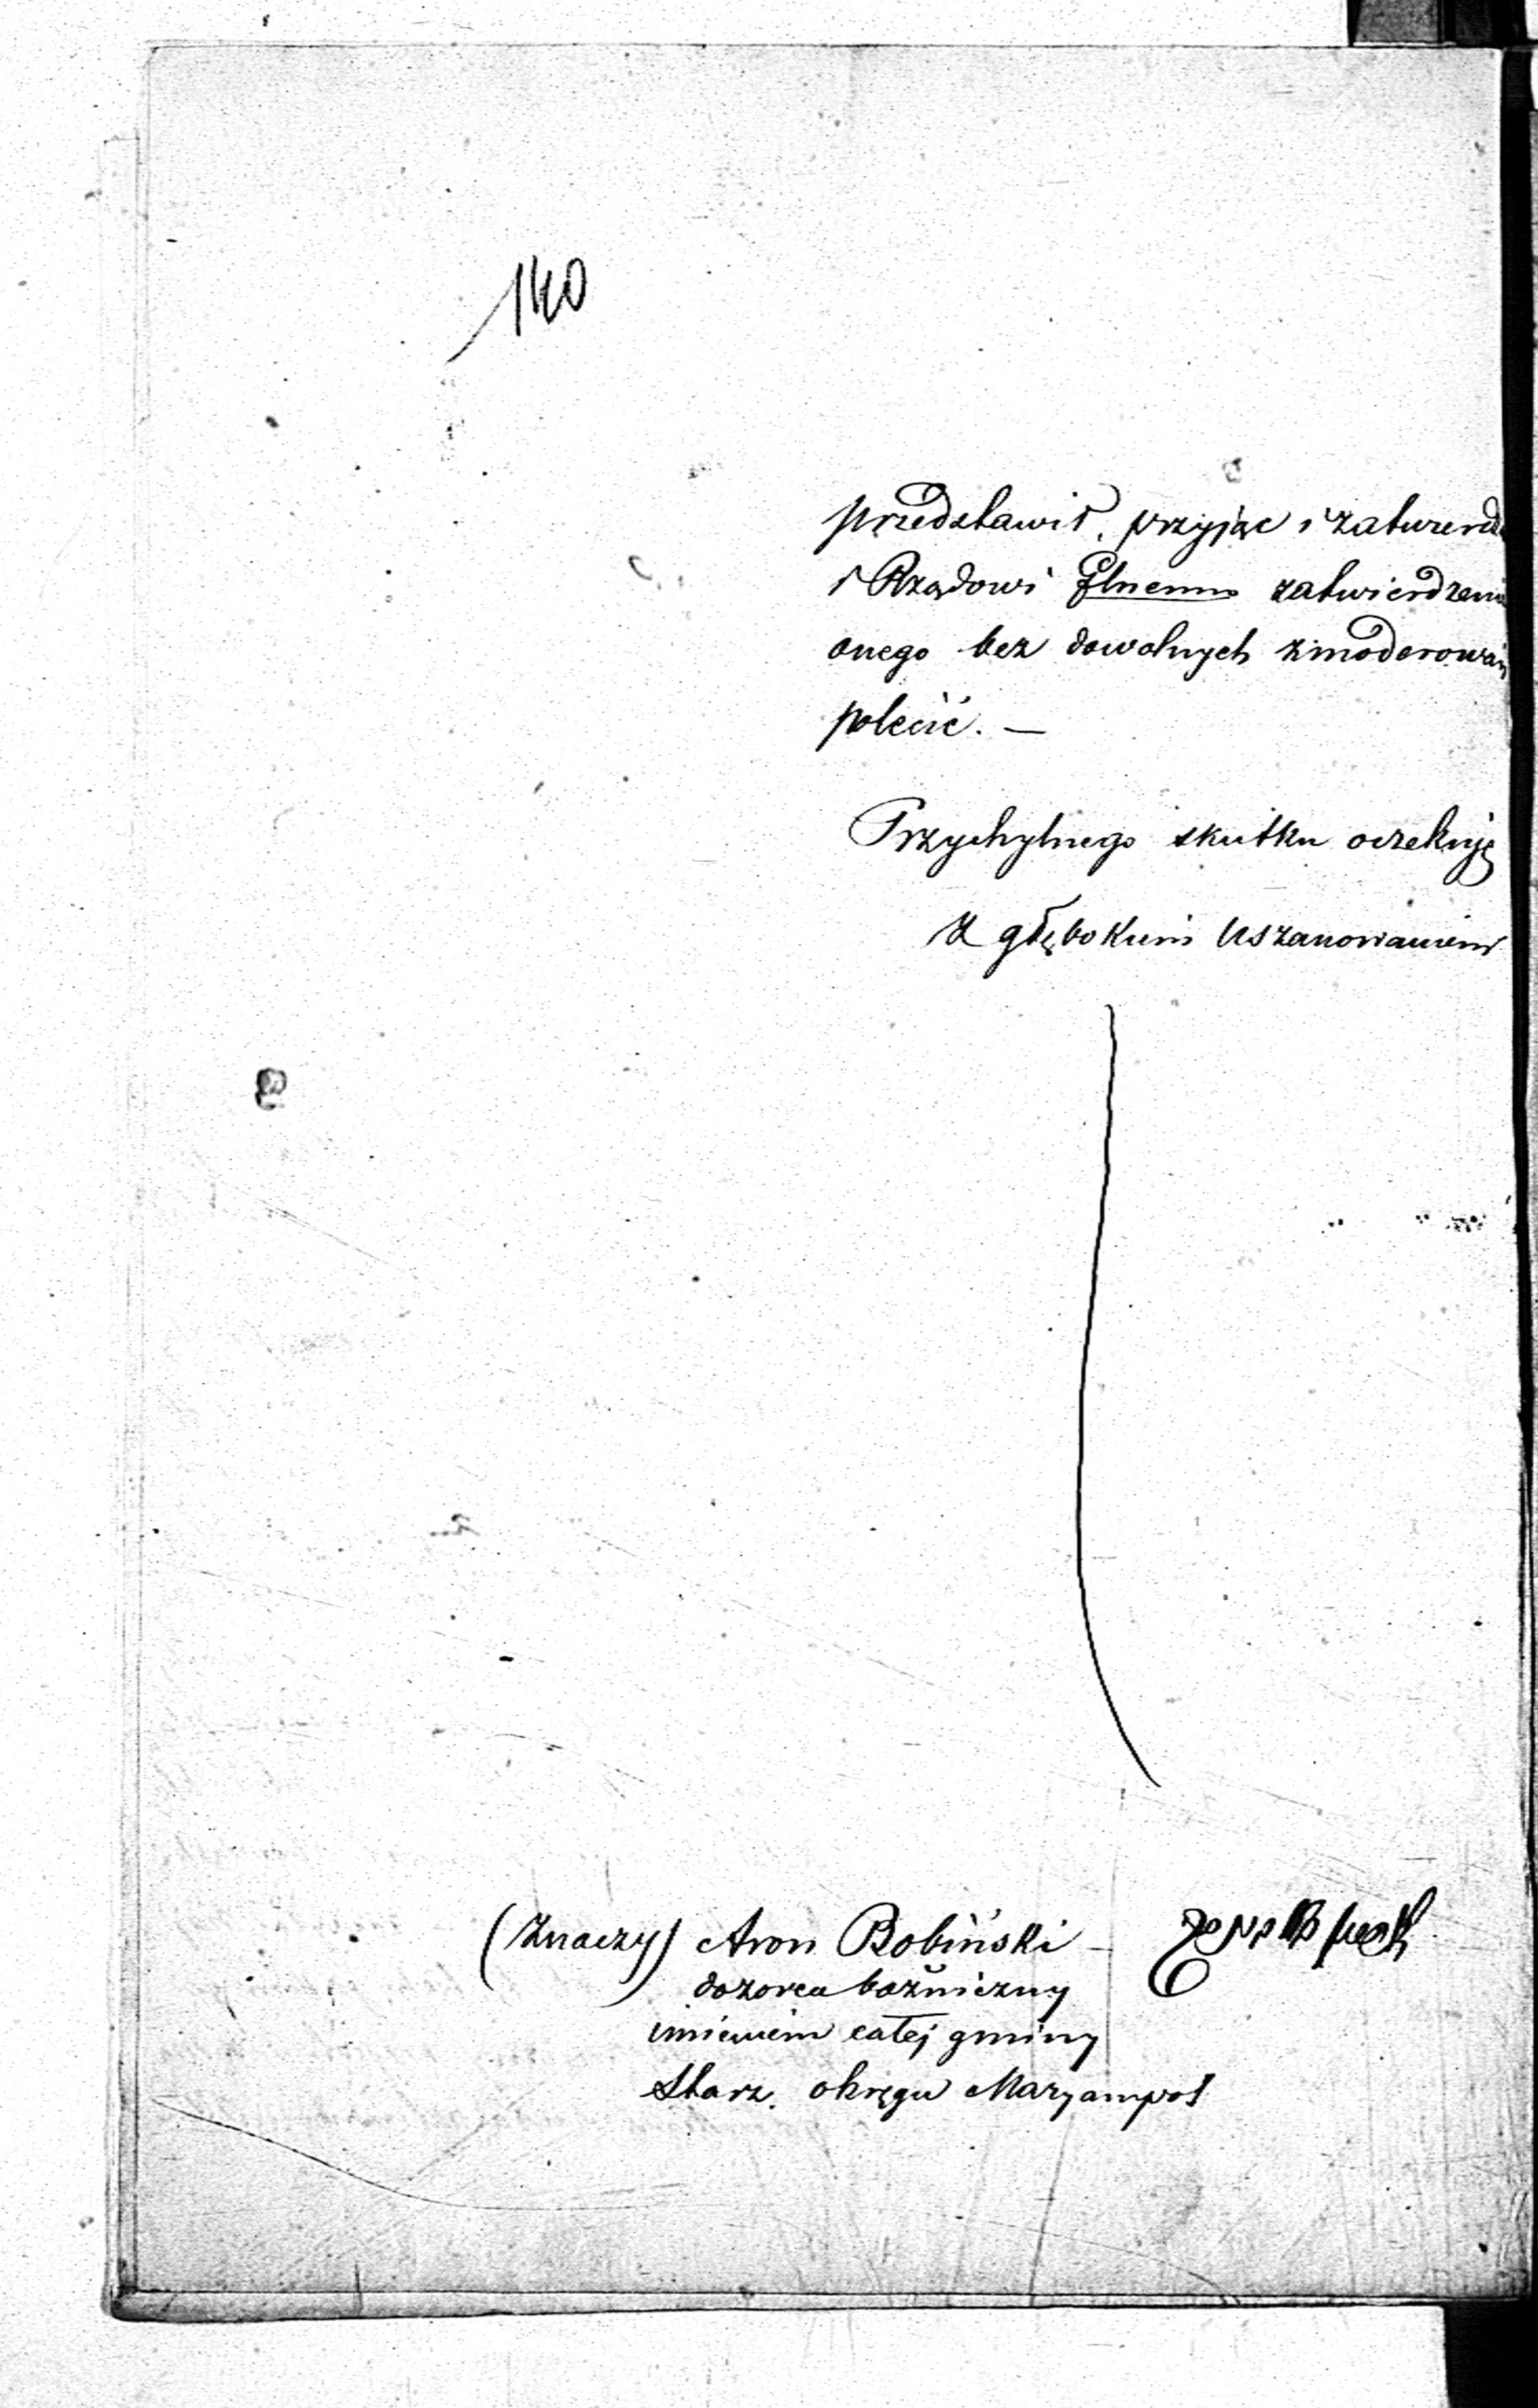 140
przedstawił, przyjąć i zatwierdzić
i Rządowi Głnemu zatwierdzenie
onego bez dowolnych zmoderowań
polecić. —
Przychylnego skutku oczekuję
z głębokim uszanowaniem
(Znaczy) Aron Bobiński —
dozorca bożniczny
imieniem całej gminy
Starz. okręgu Maryampol